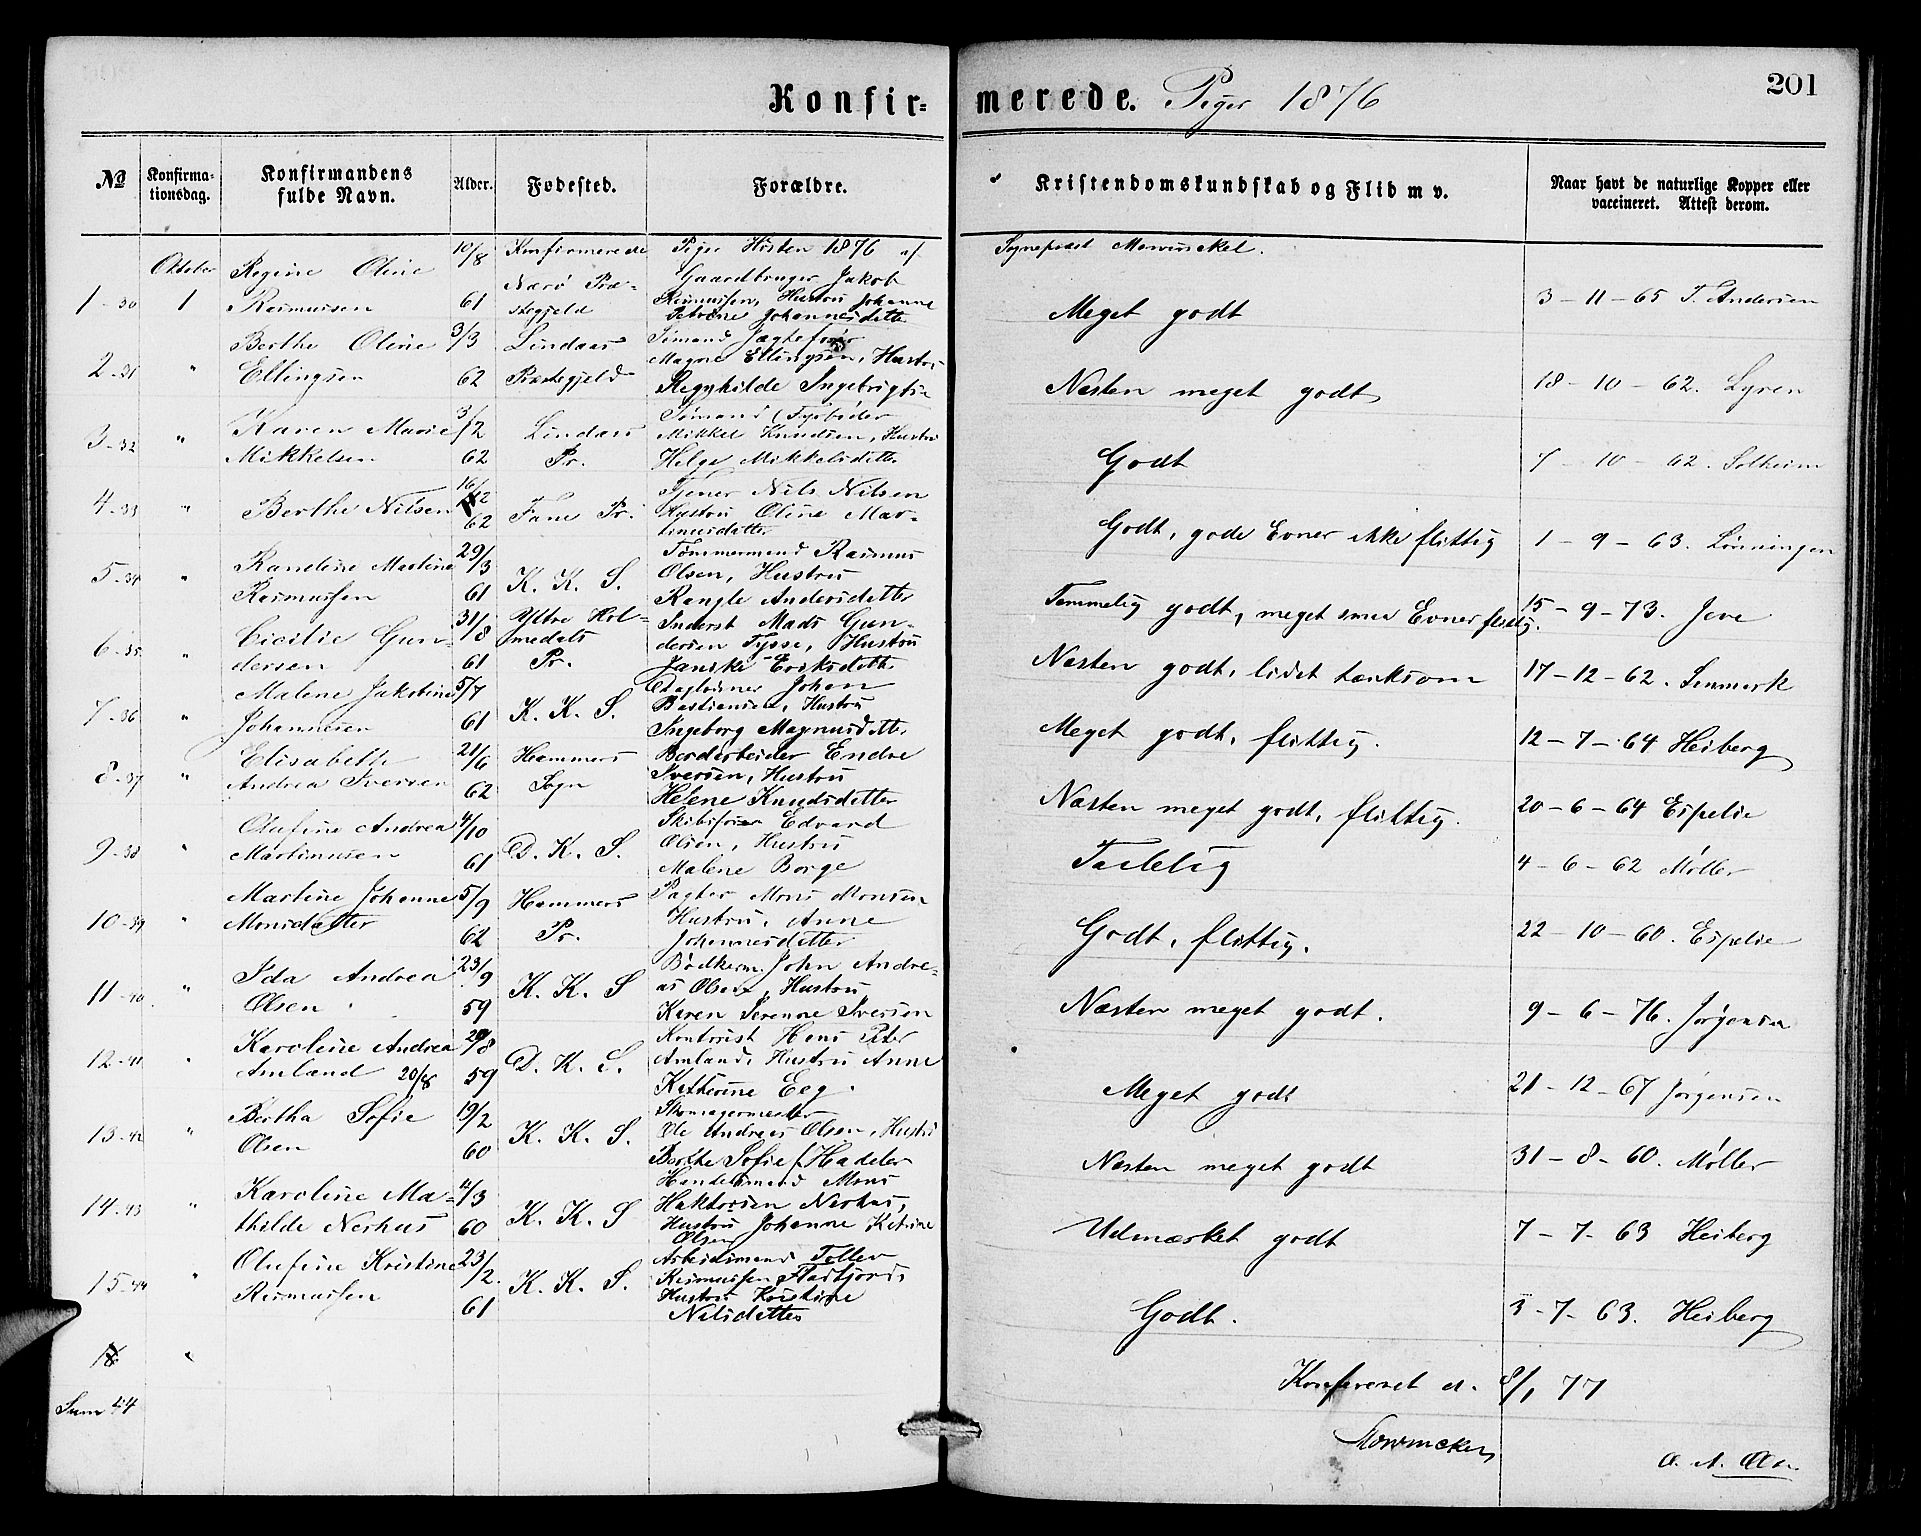 Konfir= merede. Piger 1876
201
No
Konfirma-
tionsdag.
Konfirmandens
fulde Navn.
Alder.
Fødested.
Forældre.
Kristendomskundskab og Flid m v.
Naar havt de naturlige Kopper eller
vaccineret. Attest derom.
Konfirmerede Piger Hösten 1876 af Sognepræst Mowinckel.
October
1-30 1 Regine Oline
Rasmussen
10/8
61
Nærö Præ-
stegjeld
Gaardbruger Jakob
Rasmussen, Hustru Johanne
Petrine Johannesdatter
Meget godt
3-11-65 T. Andersen
2-31 " Berthe Oline
Ellingsen
3/3
62
Lindaas
Præstegjeld
Sömand Jægtefører
Magne Ellingsen, Hustru
Regnhilde Ingebrigts
Næsten meget godt
18-10-62. Lyren
3-32 " Karen Marie
Mikkelsen
3/2
62
Lindaas
Pr.
Sömand
Mikkel Knudsen, Hustru
Helge Mikkelsdatter
Godt
7-10-62. Solheim
4-33 " Berthe Nilsen
16/12
62
Fane Pr.
Tjener Nils Nilsen
Hustru Oline Mar-
tinusdatter
Godt, gode Evner ikke flittig
1-9-63. Lönningen
5-34 " Randine Martine
Rasmussen
29/3
61
K. K. S.
Tömmermand Rasmus
Olsen, Hustru
Rangle Andersdatter
Temmelig godt, meget smaa Evner flittig.
15-9-73. Jeve
6-35 " Cicilie Gun-
dersen
31/8
61
Yttre Hol-
medals
Pr.
Inderst Mads Gun-
dersen Tysse, Hustru
Janike Eriksdatter
Næsten godt, lidet tænksom
17-12-62. Senmark
7-36 " Malene Jakobine
Johannesen
5/7
61
K. K. S.
Daglönner Johan
Bastiansen, Hustru
Ingeborg Magnusdatter
Meget godt, flittig.
12-7-64 Heiberg
8-37 " Elisabeth
Andrea Iversen
21/6
62
Hammers
Sogn
Bordarbeider Endre
Iversen, Hustru
Helene Knudsdatter
Næsten meget godt, flittig.
20-6-64 Espelie
9-38 " Olufine Andrea
Martinusen
4/10
61
D. K. S.
Skibsförer Edvard
Olsen, Hustru
Malene Borge
Taalelig
4-6-62 Møller
10-39 " Martine Johanne
Monsdatter
5/9
62
Hammers
Pr.
Pagter Mons Monsen
Hustru, Anne
Johannesdatter
Godt, flittig.
22-10-60. Espelie
11-40 " Ida Andrea
Olsen
23/9
59
K. K. S
Bödkerm. John Andre-
as Olsen, Hustru
Karen Serenne Iversen
Næsten meget godt.
9-6-76. Jørgensen
12-41 " Karoline Andrea
Amland 20/8
20/8
59
D. K. S.
Kontorist Hans Peter
Amland, Hustru Anne
Katherine Eeg.
Meget godt
21-12-67 Jørgensen
13-42 " Bertha Sofie
Olsen
19/2
60
K. K. S.
Skomagermester
Ole Andreas Olsen, Hustru
Berthe Sofie f. Hadeler
Næsten meget godt
31-8-60. Møller
14-43 " Karoline Ma-
thilde Neshus
/3
60
K. K. S
Handelsmand Mons
Haktorsen Neshus,
Hustru Johanne Katrine
Olsen
Udmærket godt
7-7-63 Heiberg
15-44 " Olufine Kristine
Rasmussen
23/2.
61
K. K. S.
Arbeidsmand Tollev
Rasmussen Fladfjord,
Hustru Kristine
Nilsdatter
Godt.
3-7-63. Heiberg
16 "
Sum 44
Konfereret d. 8/1 77
Mowinckel
O. A. Olsen